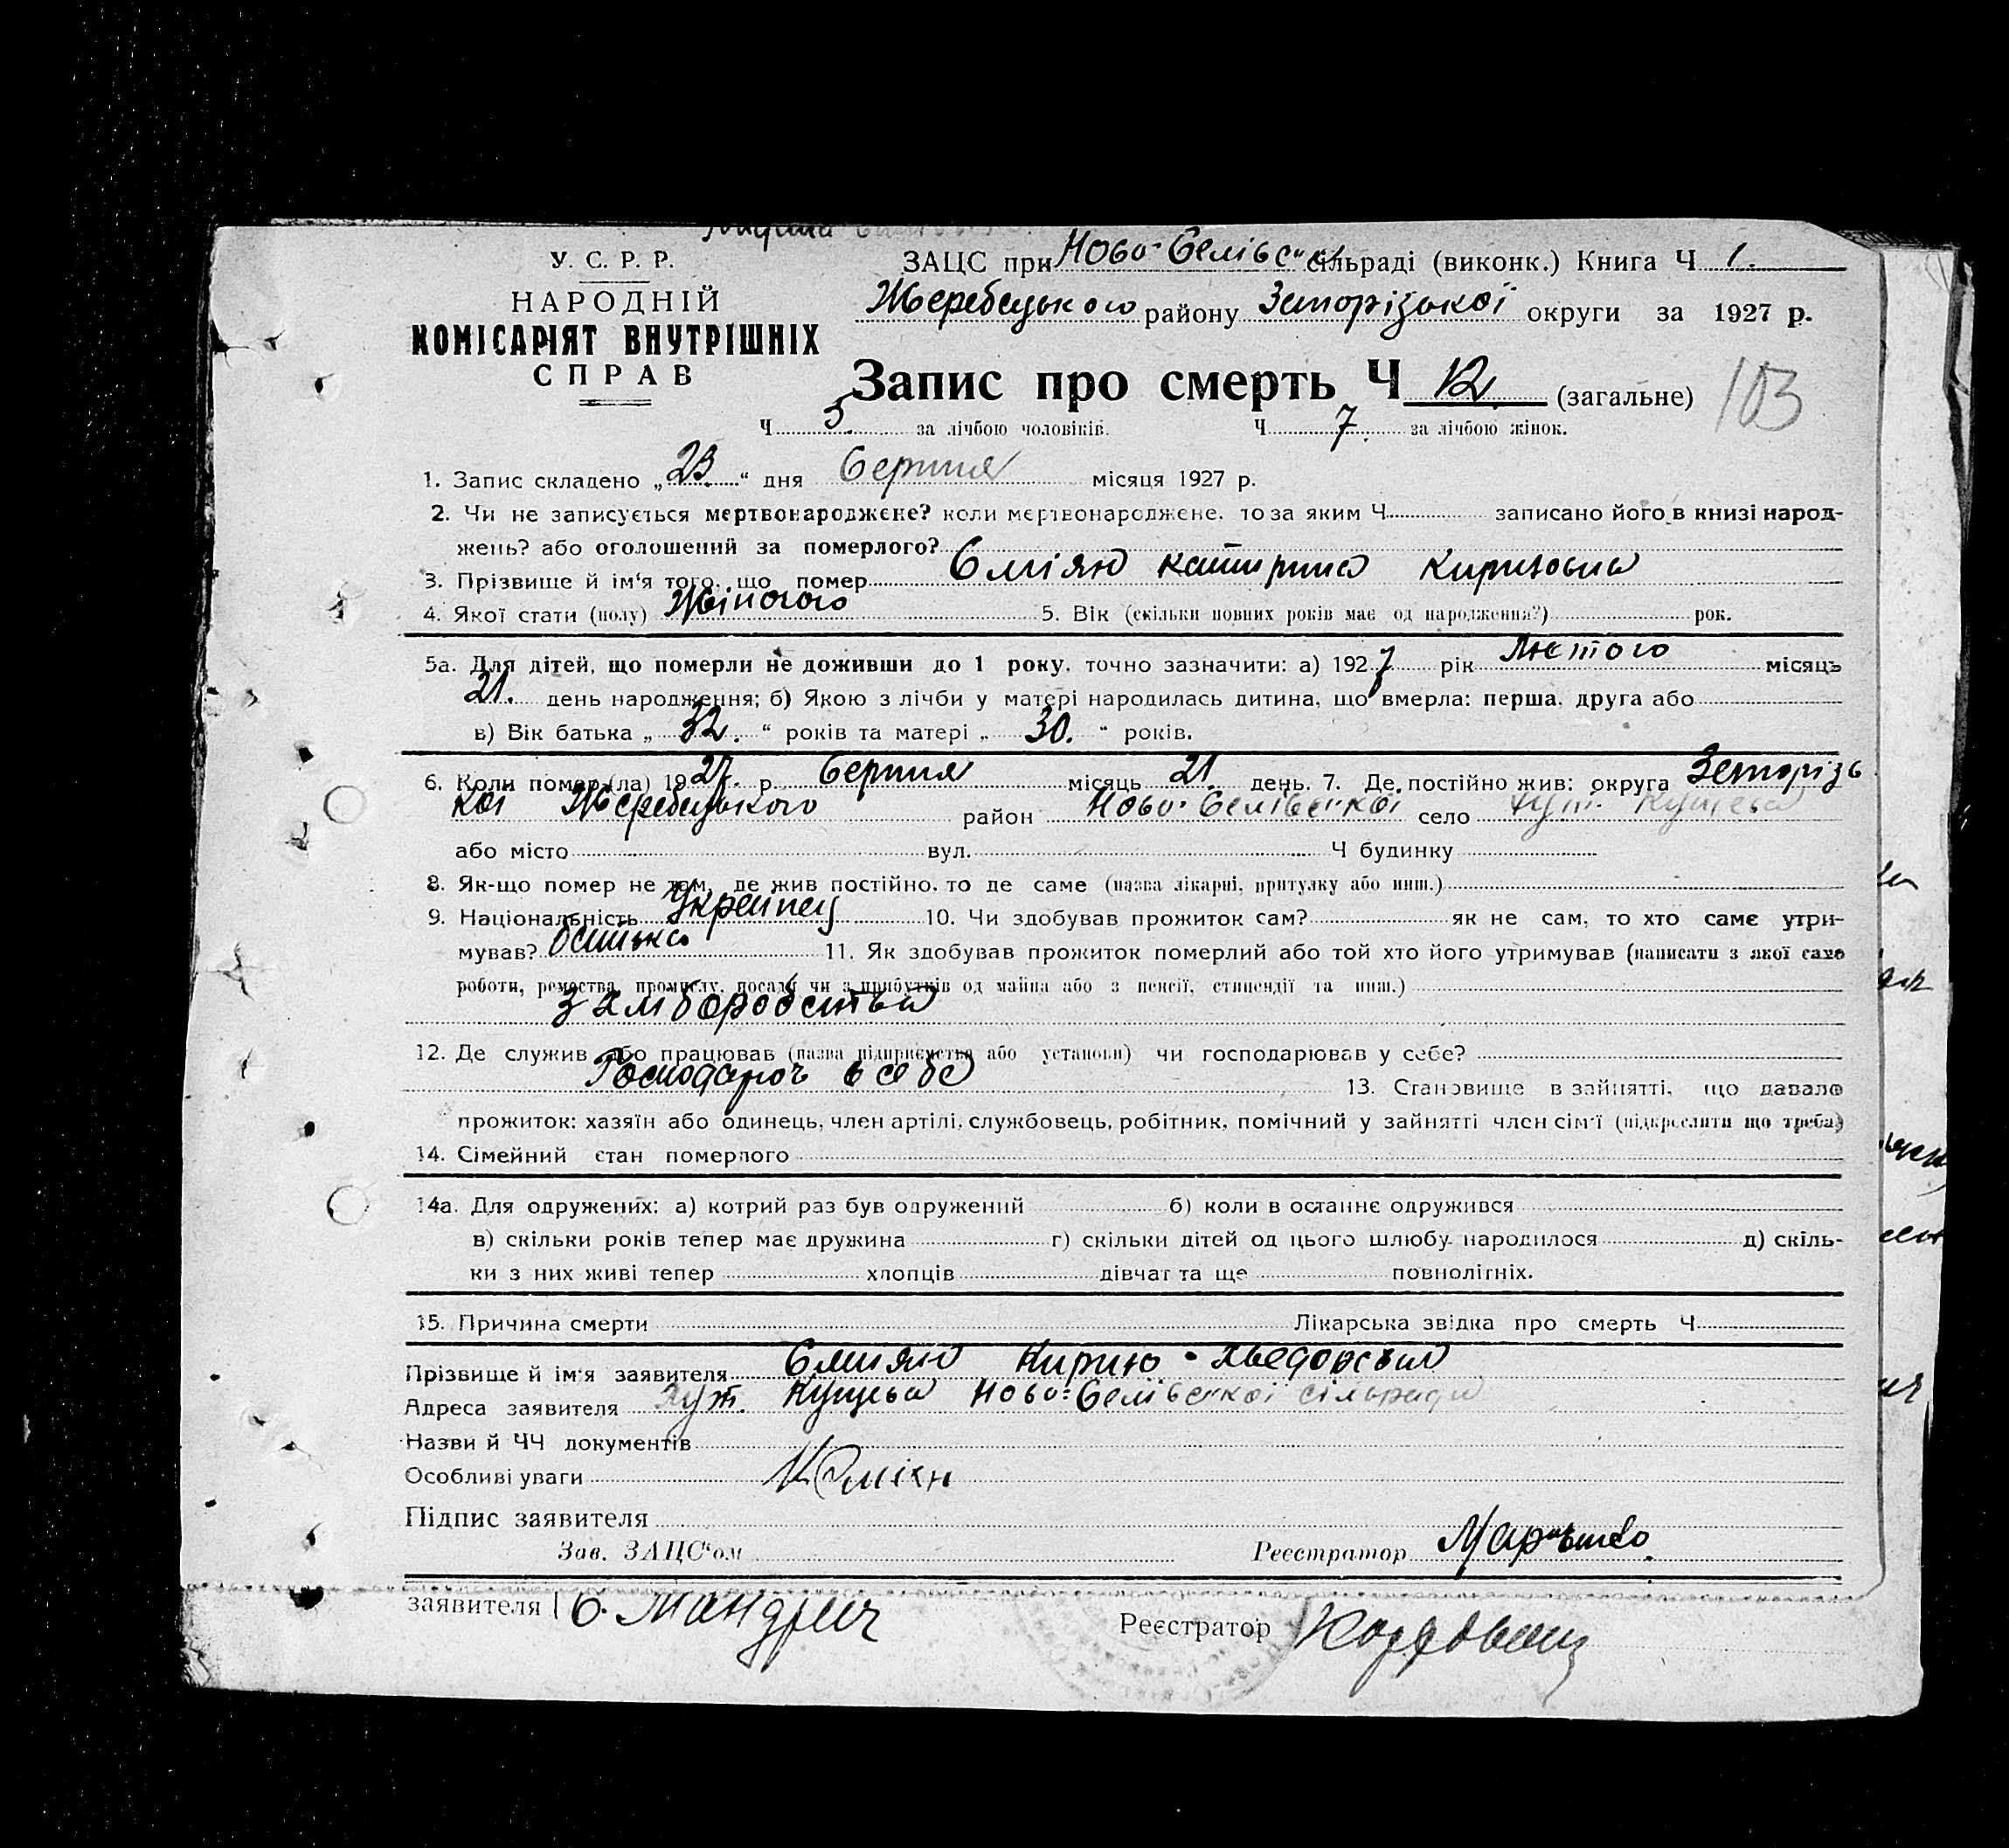 У. С. Р. Р.
НАРОДНІЙ
КОМІСАРІЯТ ВНУТРІШНІХ
СПРАВ
ЗАЦС при Ново-Селівс" сільраді (виконк.) Книга Ч 1.
Жеребецького району Запорізької округи за 1927 р.
Запис про смерть Ч 12. (загальне)
103
Ч 5. за лічбою чоловіків. Ч 7. за лічбою жінок.
1. Запис складено „23." дня Серпня місяця 1927 р.
2. Чи не записується мертвонароджене? коли мертвонароджене, то за яким Ч записано його в книзі народ-
жень? або оголошений за померлого?
3. Прізвище й ім'я того, що помер Єміян Катирина Кириловна
4. Якої стати (полу) Жіночого 5. Вік (скільки повних років має од народження?) рок.
5а. Для дітей, що померли не доживши до 1 року, точно зазначити: а) 1927 рік Лютого місяць
21. день народження; б) Якою з лічби у матері народилась дитина, що вмерла: перша, друга або
в) Вік батька „32." років та матері „30." років.
6. Коли помер (ла) 1927. р. Серпня місяць 21 день. 7. Де постійно жив: округа Запорізь
кої Жеребецького район Ново-Селівської село хут. Кущева
або місто вул. Ч будинку
8. Як-що помер не там, де жив постійно, то де саме (назва лікарні, притулку або инш.)
9. Національність Украінец 10. Чи здобував прожиток сам? як не сам, то хто саме утри-
мував? батько 11. Як здобував прожиток померлий або той хто його утримував (написати з якої саме
роботи, ремества, промислу, посади чи з прибутків од майна або з пенсії, стипендії та инш.)
12. Де служив або працював (назва підприємства або установи) чи господарював у себе?
в себе 13. Становище в зайнятті, що давало
прожиток: хазяїн або одинець, член артілі, службовець, робітник, помічний у зайнятті член сім'ї (підкреслити що треба)
14. Сімейний стан померлого
14а. Для одружених: а) котрий раз був одружений б) коли в останнє одружився
в) скільки років тепер має дружина г) скільки дітей од цього шлюбу народилося д) скіль-
ки з них живі тепер хлопців дівчат та ще повнолітніх.
15. Причина смерти Лікарська звідка про смерть Ч
Прізвище й ім'я заявителя Єміян
Адреса заявителя хут. Кущева Ново-Селівської сільради
Назви й ЧЧ документів
Особливі уваги
Підпис заявителя
Зав. ЗАЦС'ом Реєстратор
заявителя
Реєстратор